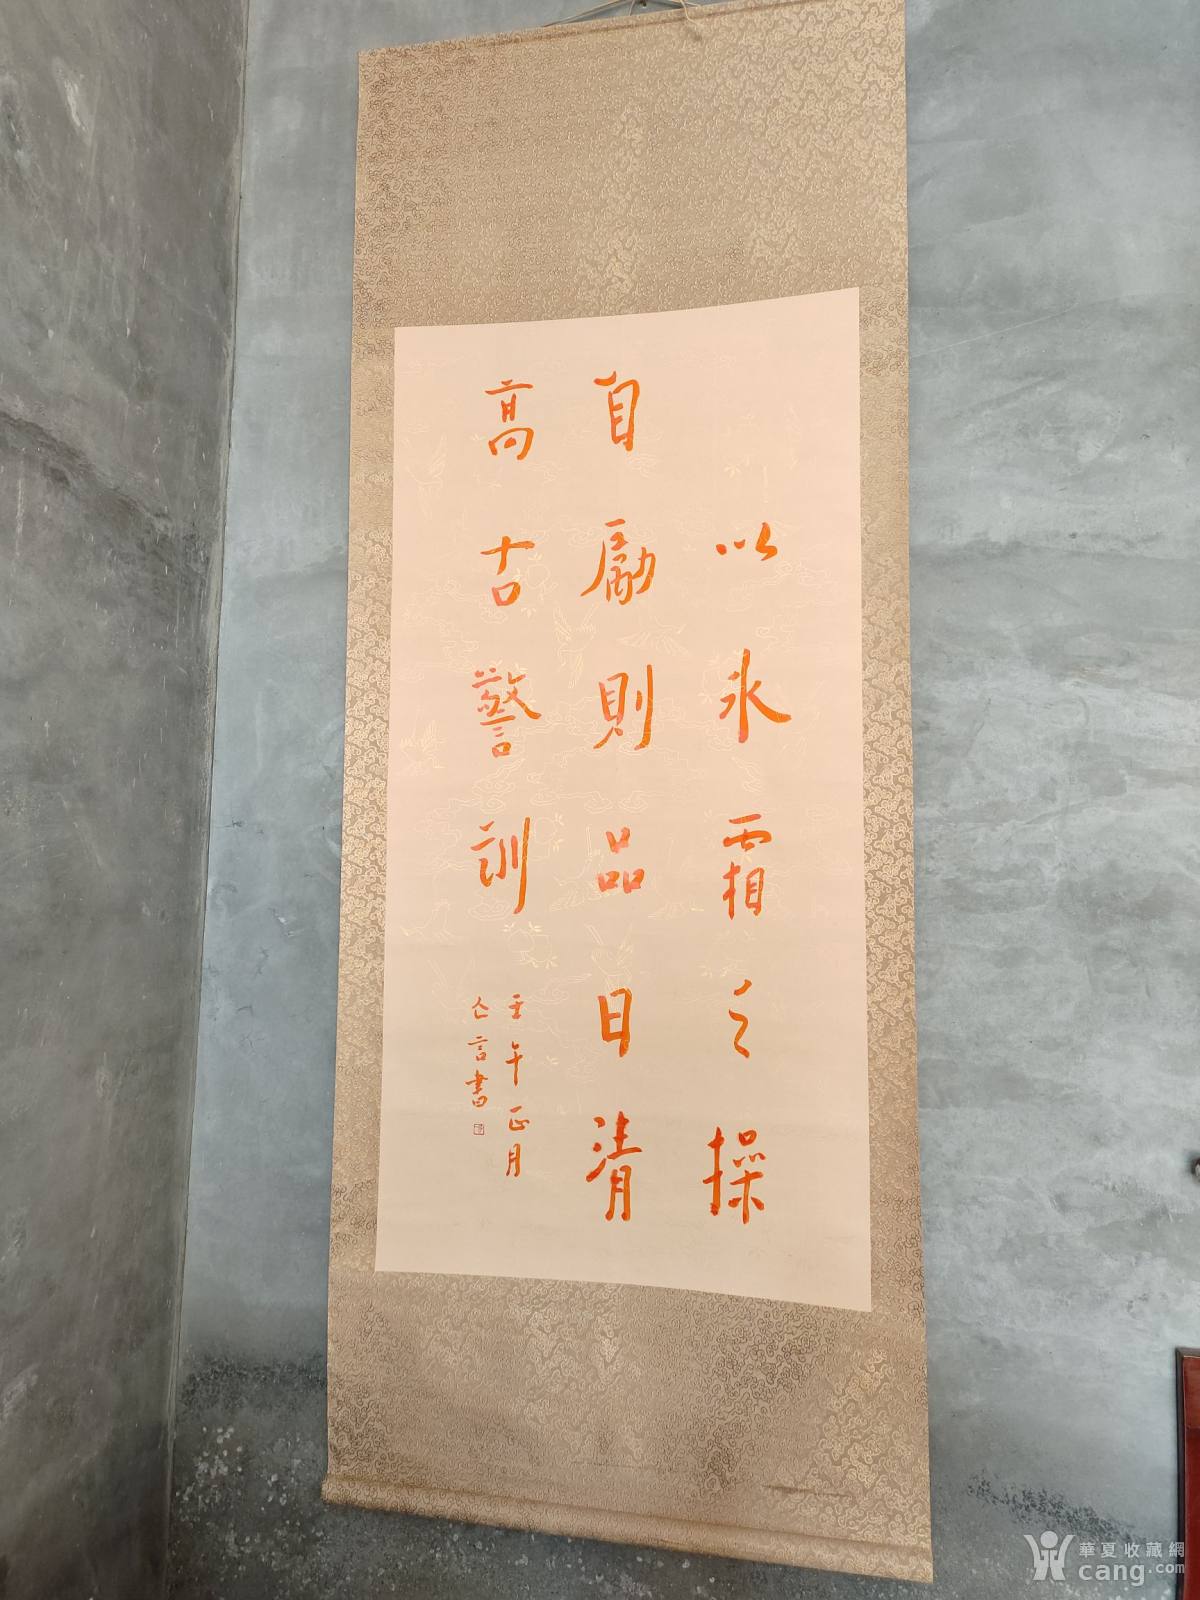 以氷霜之操
自勵則品日清
高古警訓
壬午正月
亼言書
華夏收藏網
cang.com